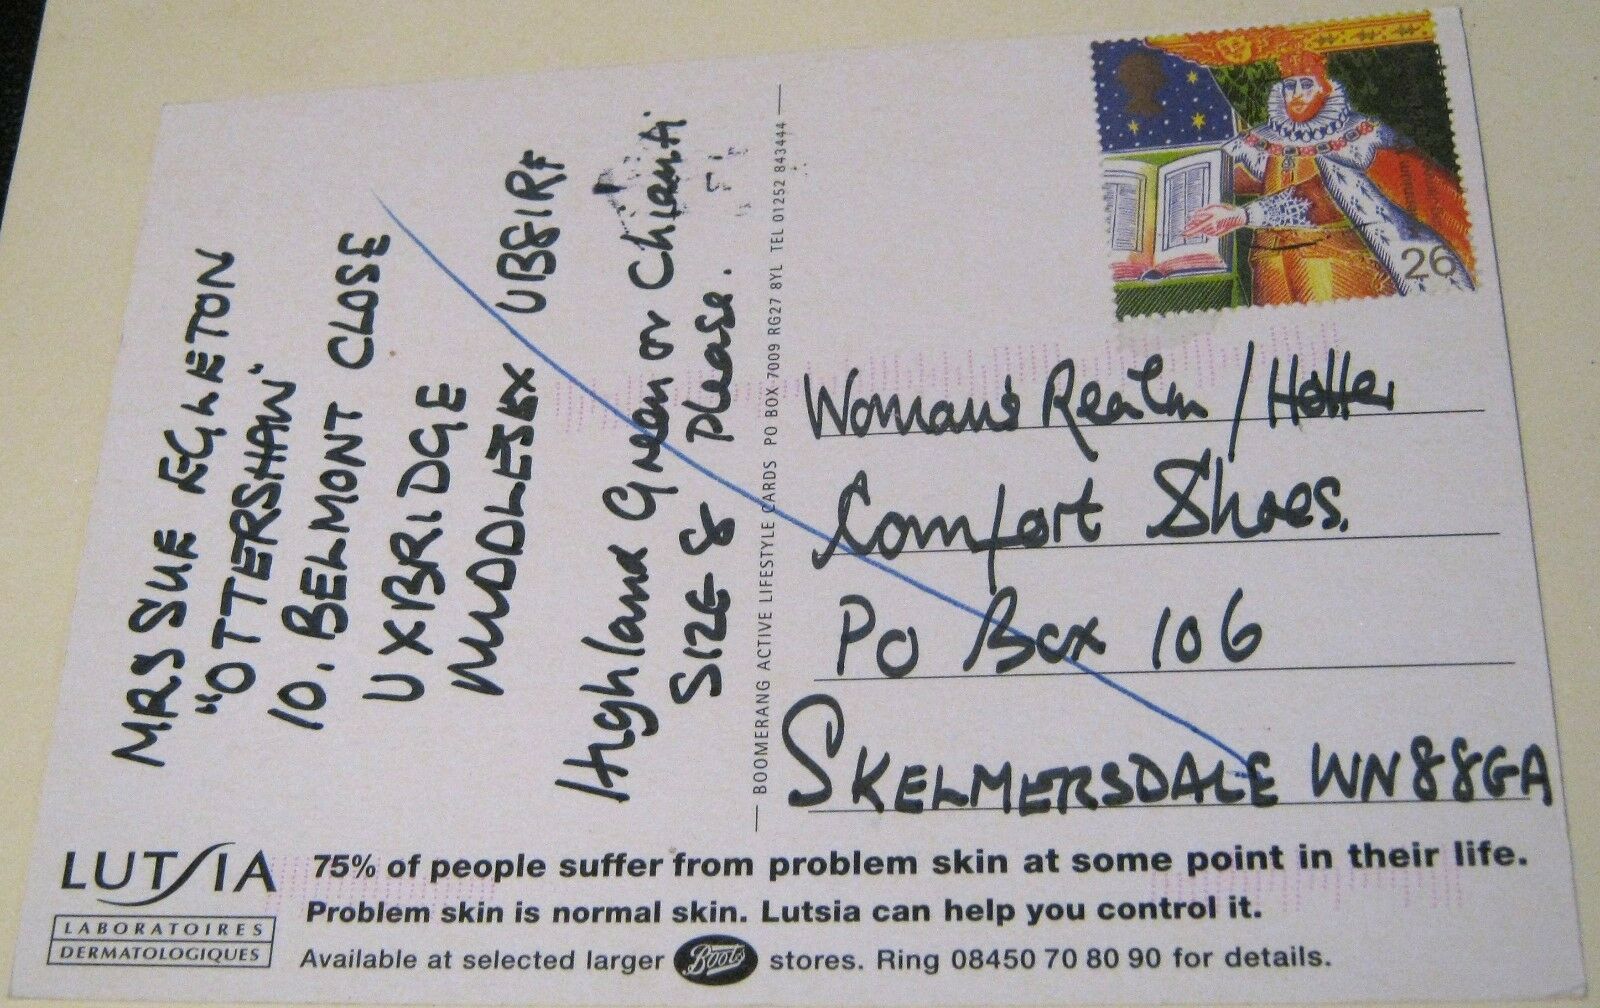 MRS SUE EGLETON
"OTTERSHAW"
10. BELMONT CLOSE
UXBRIDGE
MIDDLESEX UB8 1RF
Highland Green or Chianti
SIZE 8 please.
BOOMERANG ACTIVE LIFESTYLE CARDS PO BOX 7009 RG27 8YL TEL 01252 843444
26
Woman's Realm / Hotter
Comfort Shoes.
PO Box 106
SKELMERSDALE WN8 8GA
LUTSIA
LABORATOIRES
DERMATOLOGIQUES
75% of people suffer from problem skin at some point in their life.
Problem skin is normal skin. Lutsia can help you control it.
Available at selected larger Boots stores. Ring 08450 70 80 90 for details.